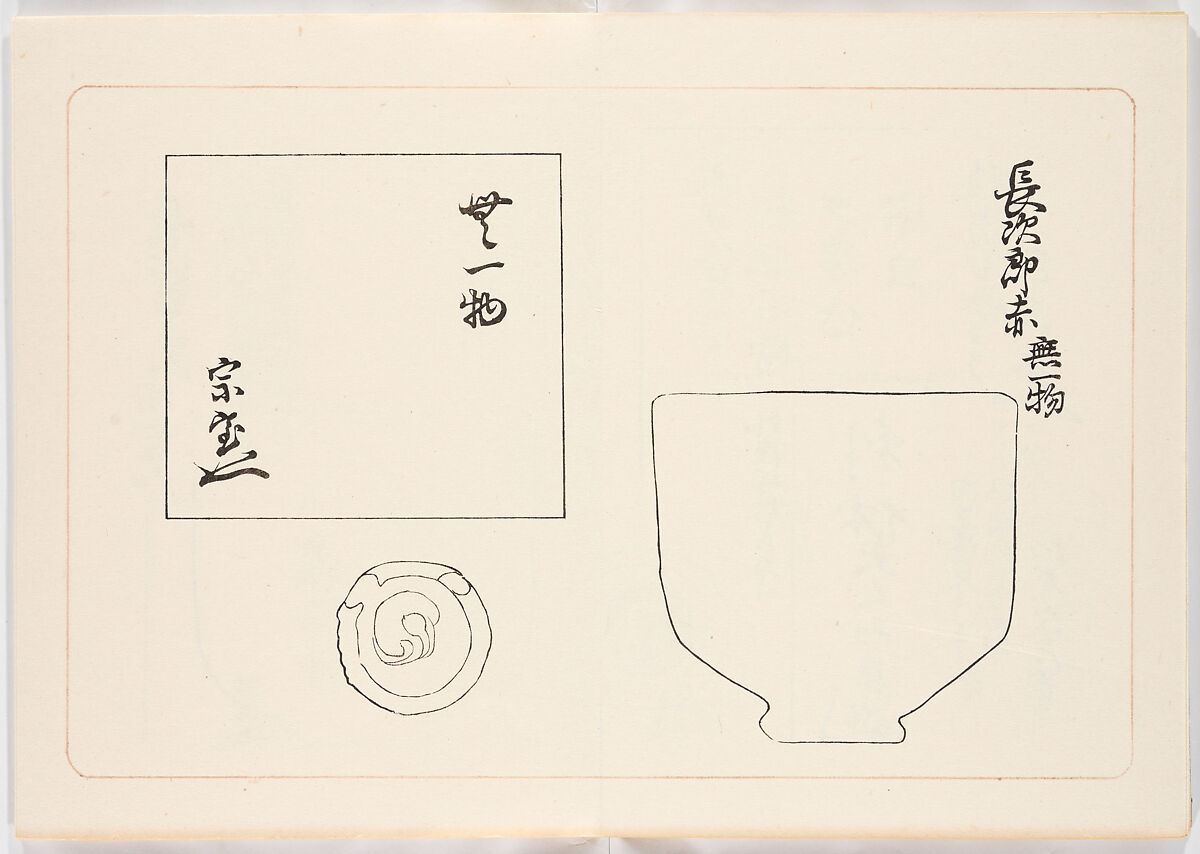 長次郎赤
無一物
無一物
宗